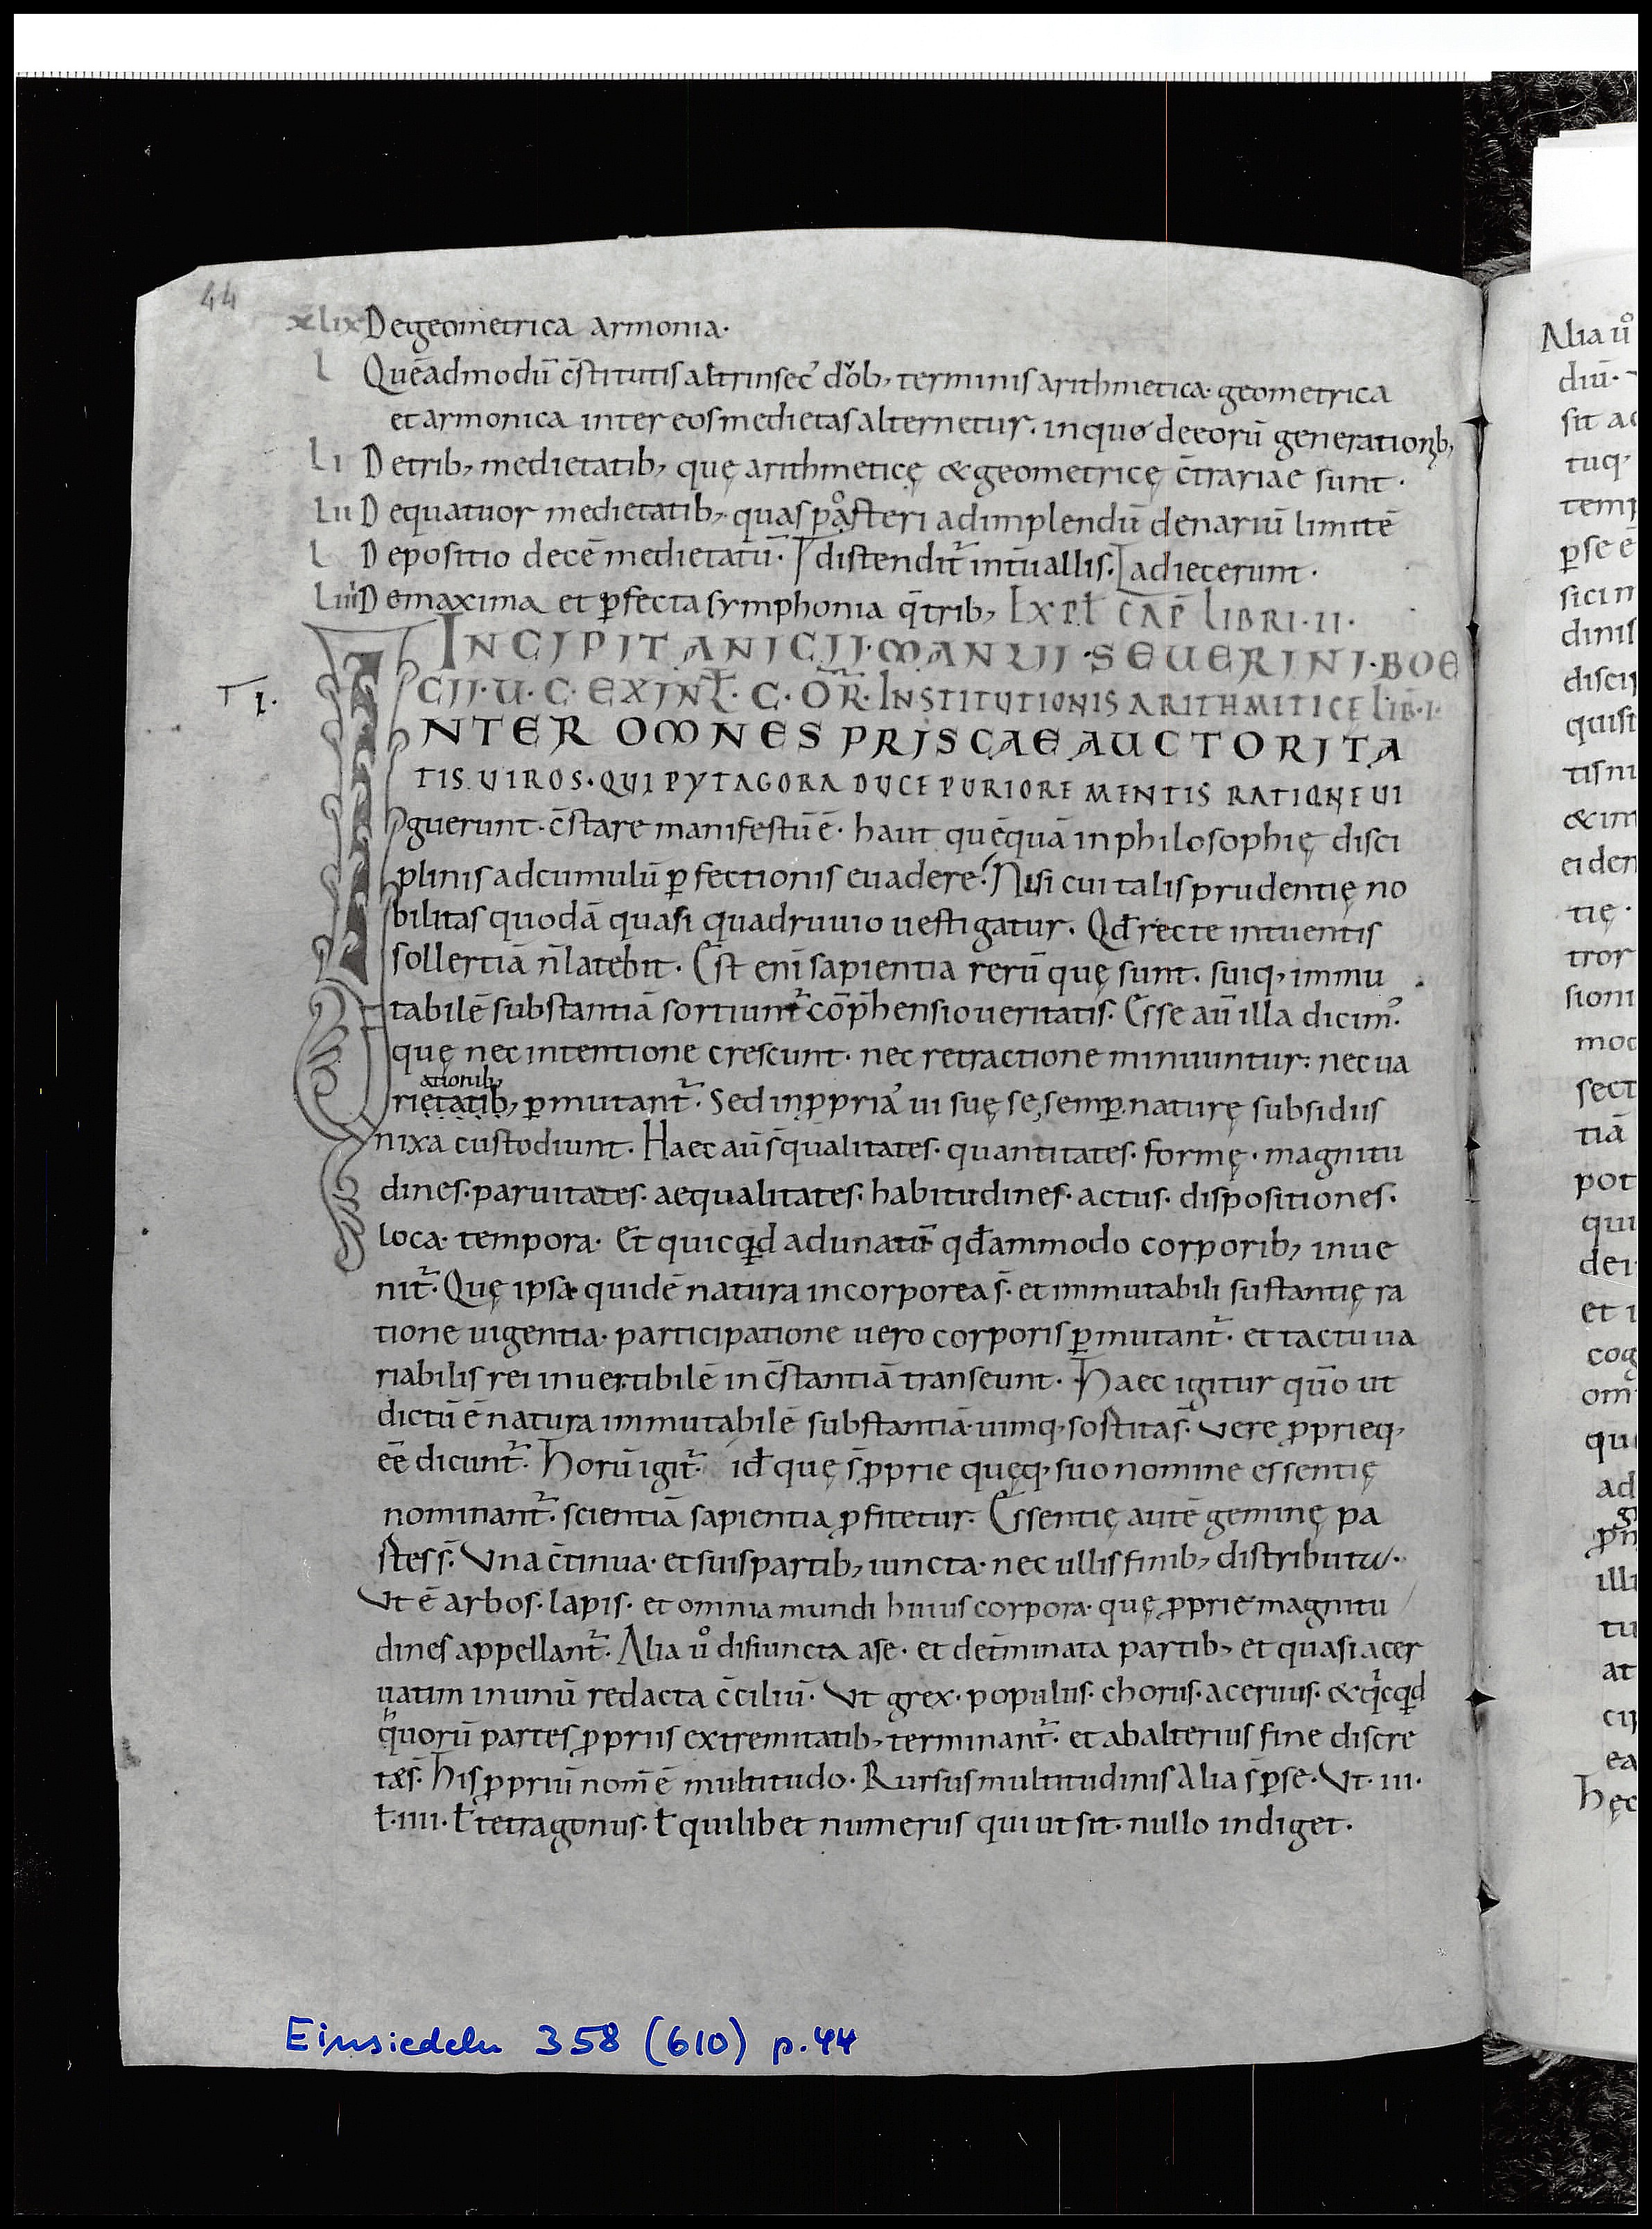 44
xlix De geometrica armonia·
l Quēadmodū c̄stitutis altrinsec᾽ duob, terminis arithmetica· geometrica
et armonica inter eos medietas alternetur. inquo deeorū generationib,
li Detrib, medietatib, quę arithmeticę & geometricę c̄trariae sunt·
lii De quatuor medietatib, quas posteri adimplendū denariū limitē
l Depositio decē medietatū· distendit᷑ int̄uallis. adiecerunt·
liiii De maxima et ꝑfecta symphonia q̄ trib, EXPŁ CAP̄ LIBRI·II·
INCIPIT ANICII·MANLII·SEUERINI·BOE
CII·U·C·EXINŁ·C·OR̄·INSTITUTIONIS ARITHMITICĘ LIB̄·I·
I.
INTER OMNES PRISCAE AUCTORITA
TIS UIROS·QUI PYTAGORA DUCE PURIORE MENTIS RATIONE UI
guerunt· c̄stare manifestū ē· haut quēquā in philosophię disci
plinis adcumulū ꝑfectionis euadere. Nisi cui talis prudentię no
bilitas quodā quasi quadruuio uestigatur. Qđ recte intuentis
sollertiā n̄ latebit. Est eni sapientia rerū quę sunt. suiq, immu
tabilē substantiā sortiunt᷑ cōp̄hensio ueritatis. Esse aū illa dicim᾽
quę nec intentione crescunt· nec retractione minuuntur: nec ua
ationib,
rietatib, ꝑmutant᷑. Sed inꝓpria᾽ ui suę se semꝑ naturę subsidiis
nixa custodiunt. Haec aū s̄ qualitates· quantitates· formę· magnitu
dines· paruitates· aequalitates· habitudines· actus· dispositiones·
loca· tempora· Et quicqd adunatū qđammodo corporib, inue
nit᷑. Quę ipsa quidē natura incorporea s̄· et immutabili sustantię ra
tione uigentia· participatione uero corporis ꝑmutant᷑· et tactu ua
riabilis rei inuertibilē inc̄stantiā transeunt. Haec igitur qūo ut
dictū ē natura immutabilē substantiā uimq, sostitas̄. Vere ꝓprieq,
eē dicunt᷑. Horū igit᷑ iđ quę s̄ ꝓprie quęq, suo nomine essentię
nominant᷑. scientiā sapientia ꝓfitetur. Essentię autē geminę pa
stes s̄. Vna c̄tinua· et suis partib, iuncta· nec ullis finib, distributa·
Vt ē arbos· lapis· et omnia mundi huius corpora· quę ꝓprie magnitu
dines appellant᷑. Alia ů disiuncta ase· et det̄minata partib, et quasi acer
uatim inunū redacta c̄ciliū· Vt grex· populus· chorus· aceruus· & qicqd
quorū partes ꝓpriis extremitatib, terminant᷑. et abalterius fine discre
tę s̄. His ꝓpriū nom̄ ē multitudo· Rursus multitudinis Alia s̄ ꝑse· Vt· III·
ł· IIII· ł tetragonus· ł quilibet numerus qui ut sit· nullo indiget·
Einsiedeln 358 (610) p.44